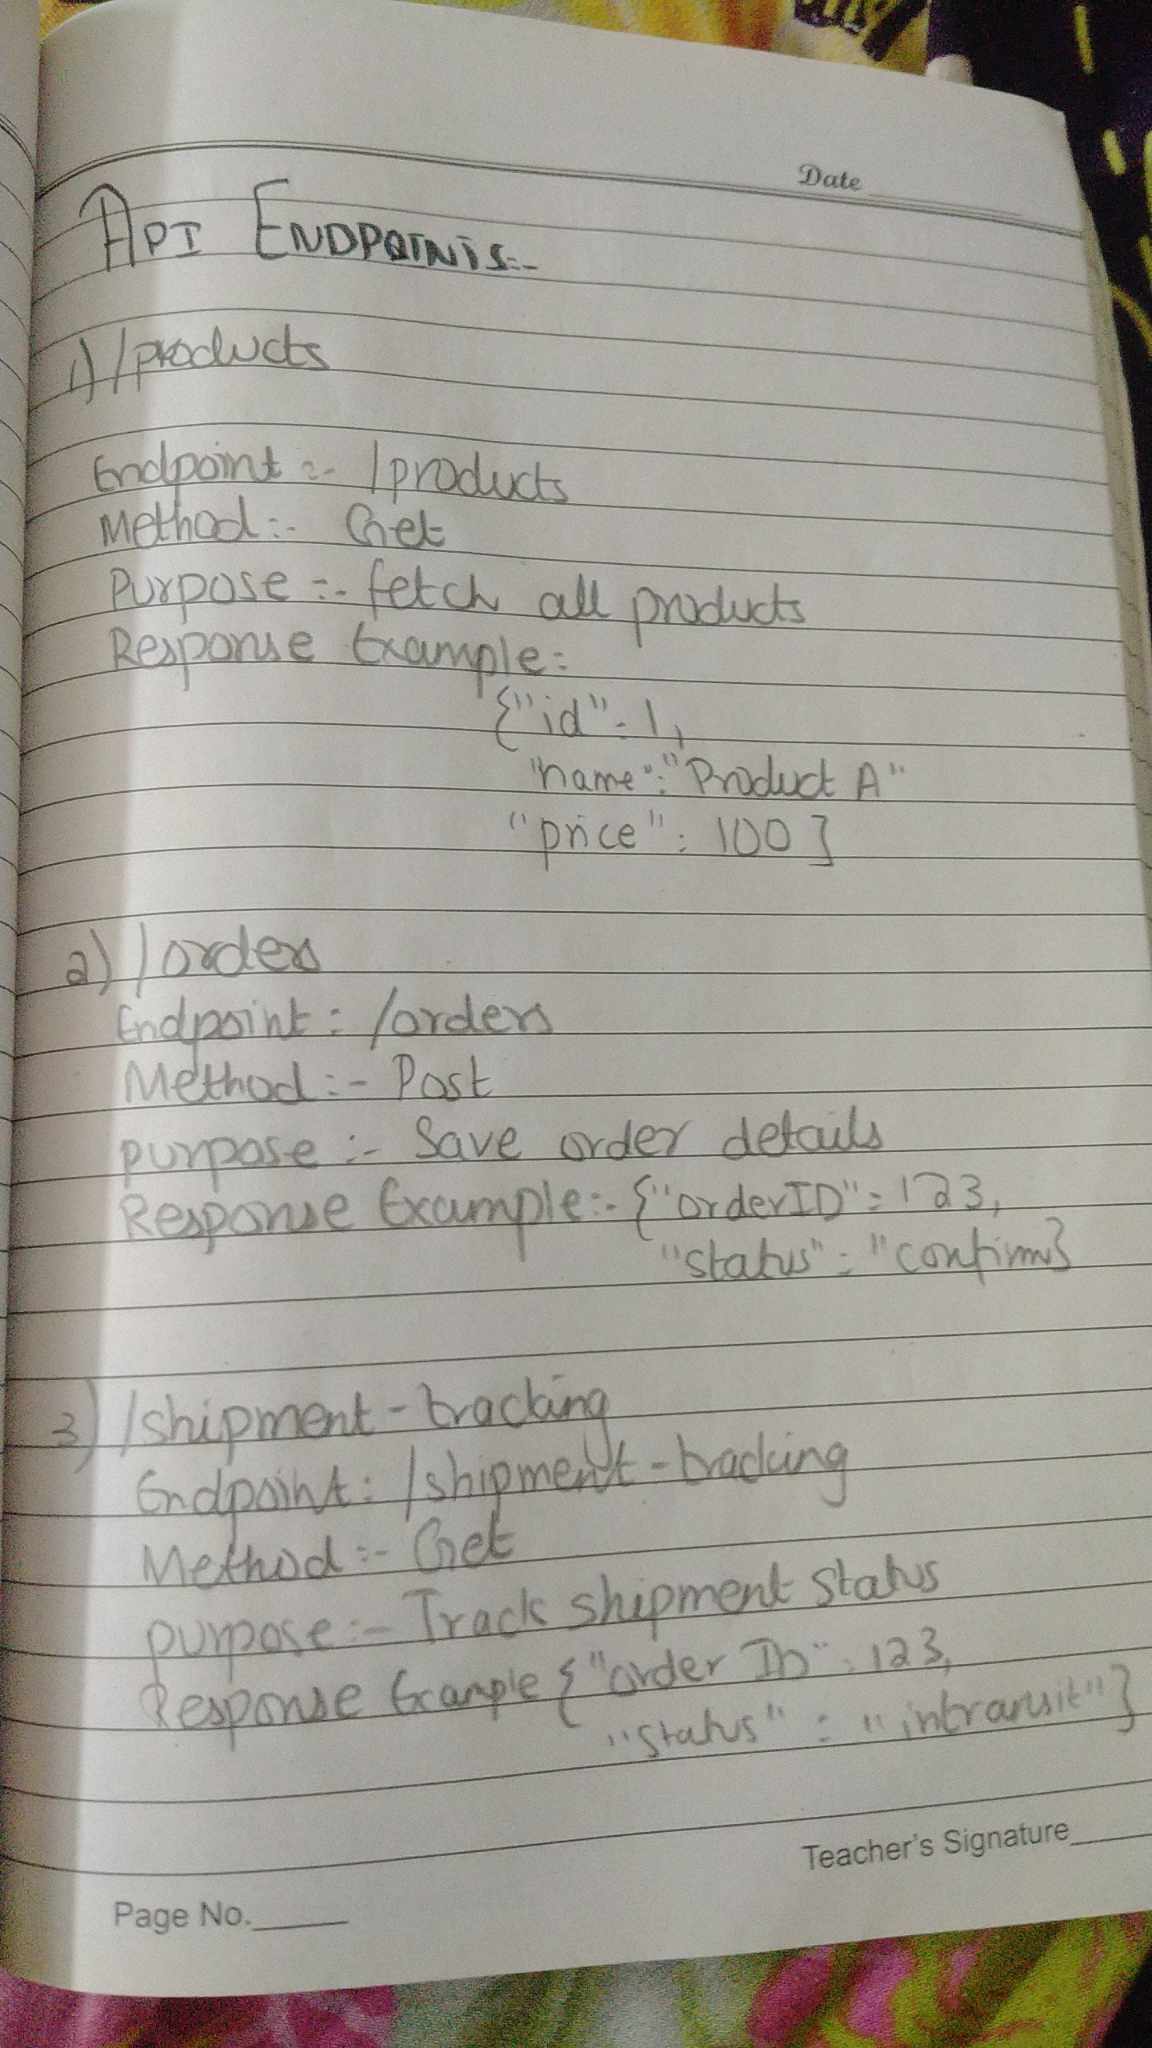 Date
API ENDPOINTS:-
1) /products
Endpoint :- /products
Method :- Get
Purpose :- fetch all products
Response Example:
{"id": 1,
"name": "Product A"
"price": 100 }
2) /orders
Endpoint : /orders
Method :- Post
purpose :- Save order details
Response Example:- {"orderID": 123,
"status": "confirm}
3) /shipment-tracking
Endpoint: /shipment-tracking
Method :- Get
purpose :- Track shipment status
Response Example {"order ID": 123,
"status" : "intransit"}
Teacher's Signature
Page No.